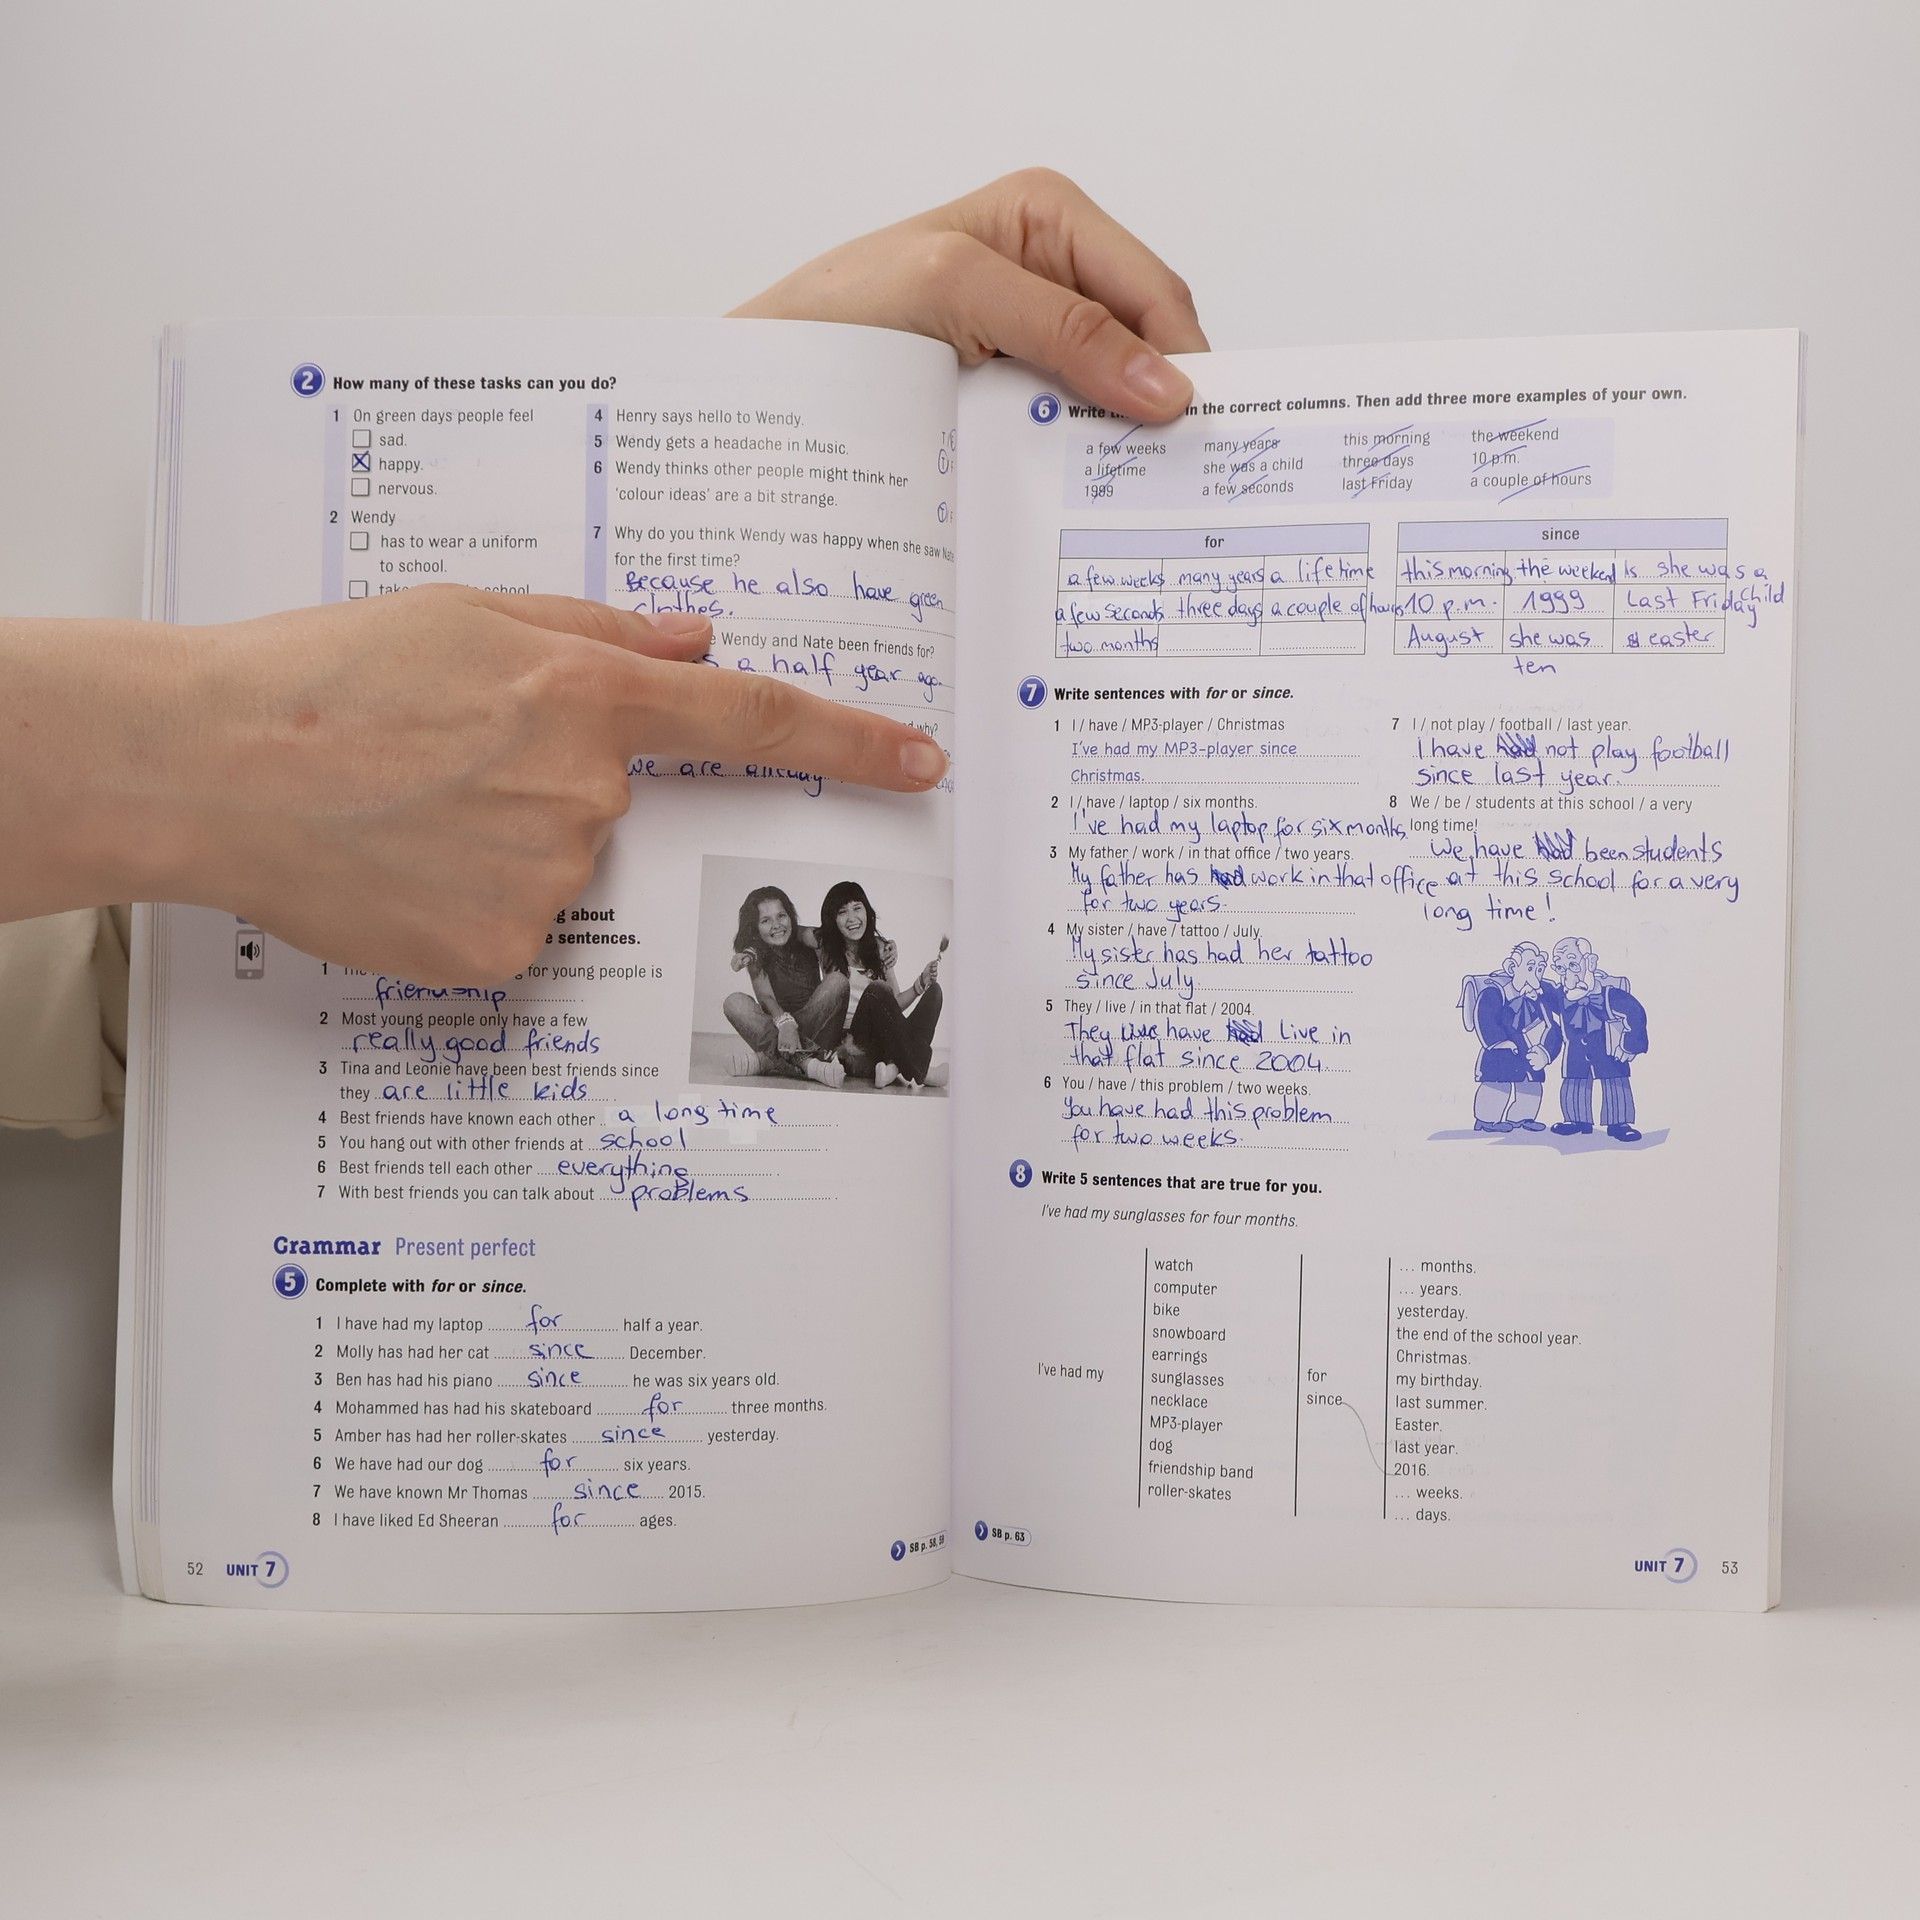 2 How many of these tasks can you do?
1 On green days people feel
sad.
happy.
nervous.
2 Wendy
has to wear a uniform
to school.
4 Henry says hello to Wendy.
5 Wendy gets a headache in Music.
6 Wendy thinks other people might think her
'colour ideas' are a bit strange.
7 Why do you think Wendy was happy when she saw
for the first time?
Because he also have green
clothes.
Wendy and Nate been friends for?
a half year ago.
why?
we are
about
sentences.
1 for young people is
friendship
2 Most young people only have a few
really good friends
3 Tina and Leonie have been best friends since
they are little kids
4 Best friends have known each other a long time
5 You hang out with other friends at school
6 Best friends tell each other everything
7 With best friends you can talk about problems
Grammar Present perfect
5 Complete with for or since.
1 I have had my laptop for half a year.
2 Molly has had her cat since December.
3 Ben has had his piano since he was six years old.
4 Mohammed has had his skateboard for three months.
5 Amber has had her roller-skates since yesterday.
6 We have had our dog for six years.
7 We have known Mr Thomas since 2015.
8 I have liked Ed Sheeran for ages.
SB p. 58, 59
52 UNIT 7
6 Write in the correct columns. Then add three more examples of your own.
a few weeks many years this morning the weekend
a lifetime she was a child three days 10 p.m.
1989 a few seconds last Friday a couple of hours
for since
a few weeks many years a lifetime this morning the weekend she was a child
a few seconds three days a couple of hours 10 p.m. 1999 Last Friday
two months August she was ten easter
7 Write sentences with for or since.
1 I / have / MP3-player / Christmas
I've had my MP3-player since
Christmas.
2 I / have / laptop / six months.
I've had my laptop for six months.
3 My father / work / in that office / two years.
My father has had work in that office
for two years.
4 My sister / have / tattoo / July.
My sister has had her tattoo
since July
5 They / live / in that flat / 2004.
They live have had live in
that flat since 2004.
6 You / have / this problem / two weeks.
You have had this problem
for two weeks.
7 I / not play / football / last year.
I have had not play football
since last year.
8 We / be / students at this school / a very
long time!
We have had been students
at this school for a very
long time!
8 Write 5 sentences that are true for you.
I've had my sunglasses for four months.
I've had my
watch
computer
bike
snowboard
earrings
sunglasses
necklace
MP3-player
dog
friendship band
roller-skates
for
since
... months.
... years.
yesterday.
the end of the school year.
Christmas.
my birthday.
last summer.
Easter.
last year.
2016.
... weeks.
... days.
SB p. 63
UNIT 7 53